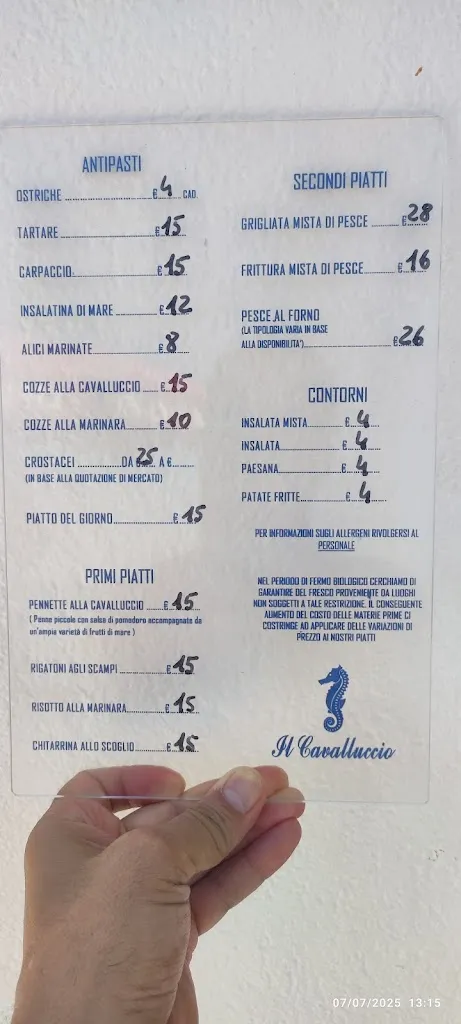 ANTIPASTI
OSTRICHE ........ € 4 CAD.
TARTARE ........ € 15
CARPACCIO ........ € 15
INSALATINA DI MARE ........ € 12
ALICI MARINATE ........ € 8
COZZE ALLA CAVALLUCCIO ..... € 15
COZZE ALLA MARINARA ..... € 10
CROSTACEI ........ DA 25 A €........
(IN BASE ALLA QUOTAZIONE DI MERCATO)
PIATTO DEL GIORNO ........ € 15
PRIMI PIATTI
PENNETTE ALLA CAVALLUCCIO ..... € 15
( Penne piccole con salsa di pomodoro accompagnate da
un'ampia varietà di frutti di mare )
RIGATONI AGLI SCAMPI ........ € 15
RISOTTO ALLA MARINARA ........ € 15
CHITARRINA ALLO SCOGLIO ........ € 15
SECONDI PIATTI
GRIGLIATA MISTA DI PESCE ........ € 28
FRITTURA MISTA DI PESCE ........ € 16
PESCE AL FORNO
(LA TIPOLOGIA VARIA IN BASE
ALLA DISPONIBILITA') ........ € 26
CONTORNI
INSALATA MISTA ........ € 4
INSALATA ........ € 4
PAESANA ........ € 4
PATATE FRITTE ........ € 4
PER INFORMAZIONI SUGLI ALLERGENI RIVOLGERSI AL
PERSONALE
NEL PERIODO DI FERMO BIOLOGICO CERCHIAMO DI
GARANTIRE DEL FRESCO PROVENIENTE DA LUOGHI
NON SOGGETTI A TALE RESTRIZIONE. IL CONSEGUENTE
AUMENTO DEL COSTO DELLE MATERIE PRIME CI
COSTRINGE AD APPLICARE DELLE VARIAZIONI DI
PREZZO AI NOSTRI PIATTI
Il Cavalluccio
07/07/2025 13:15